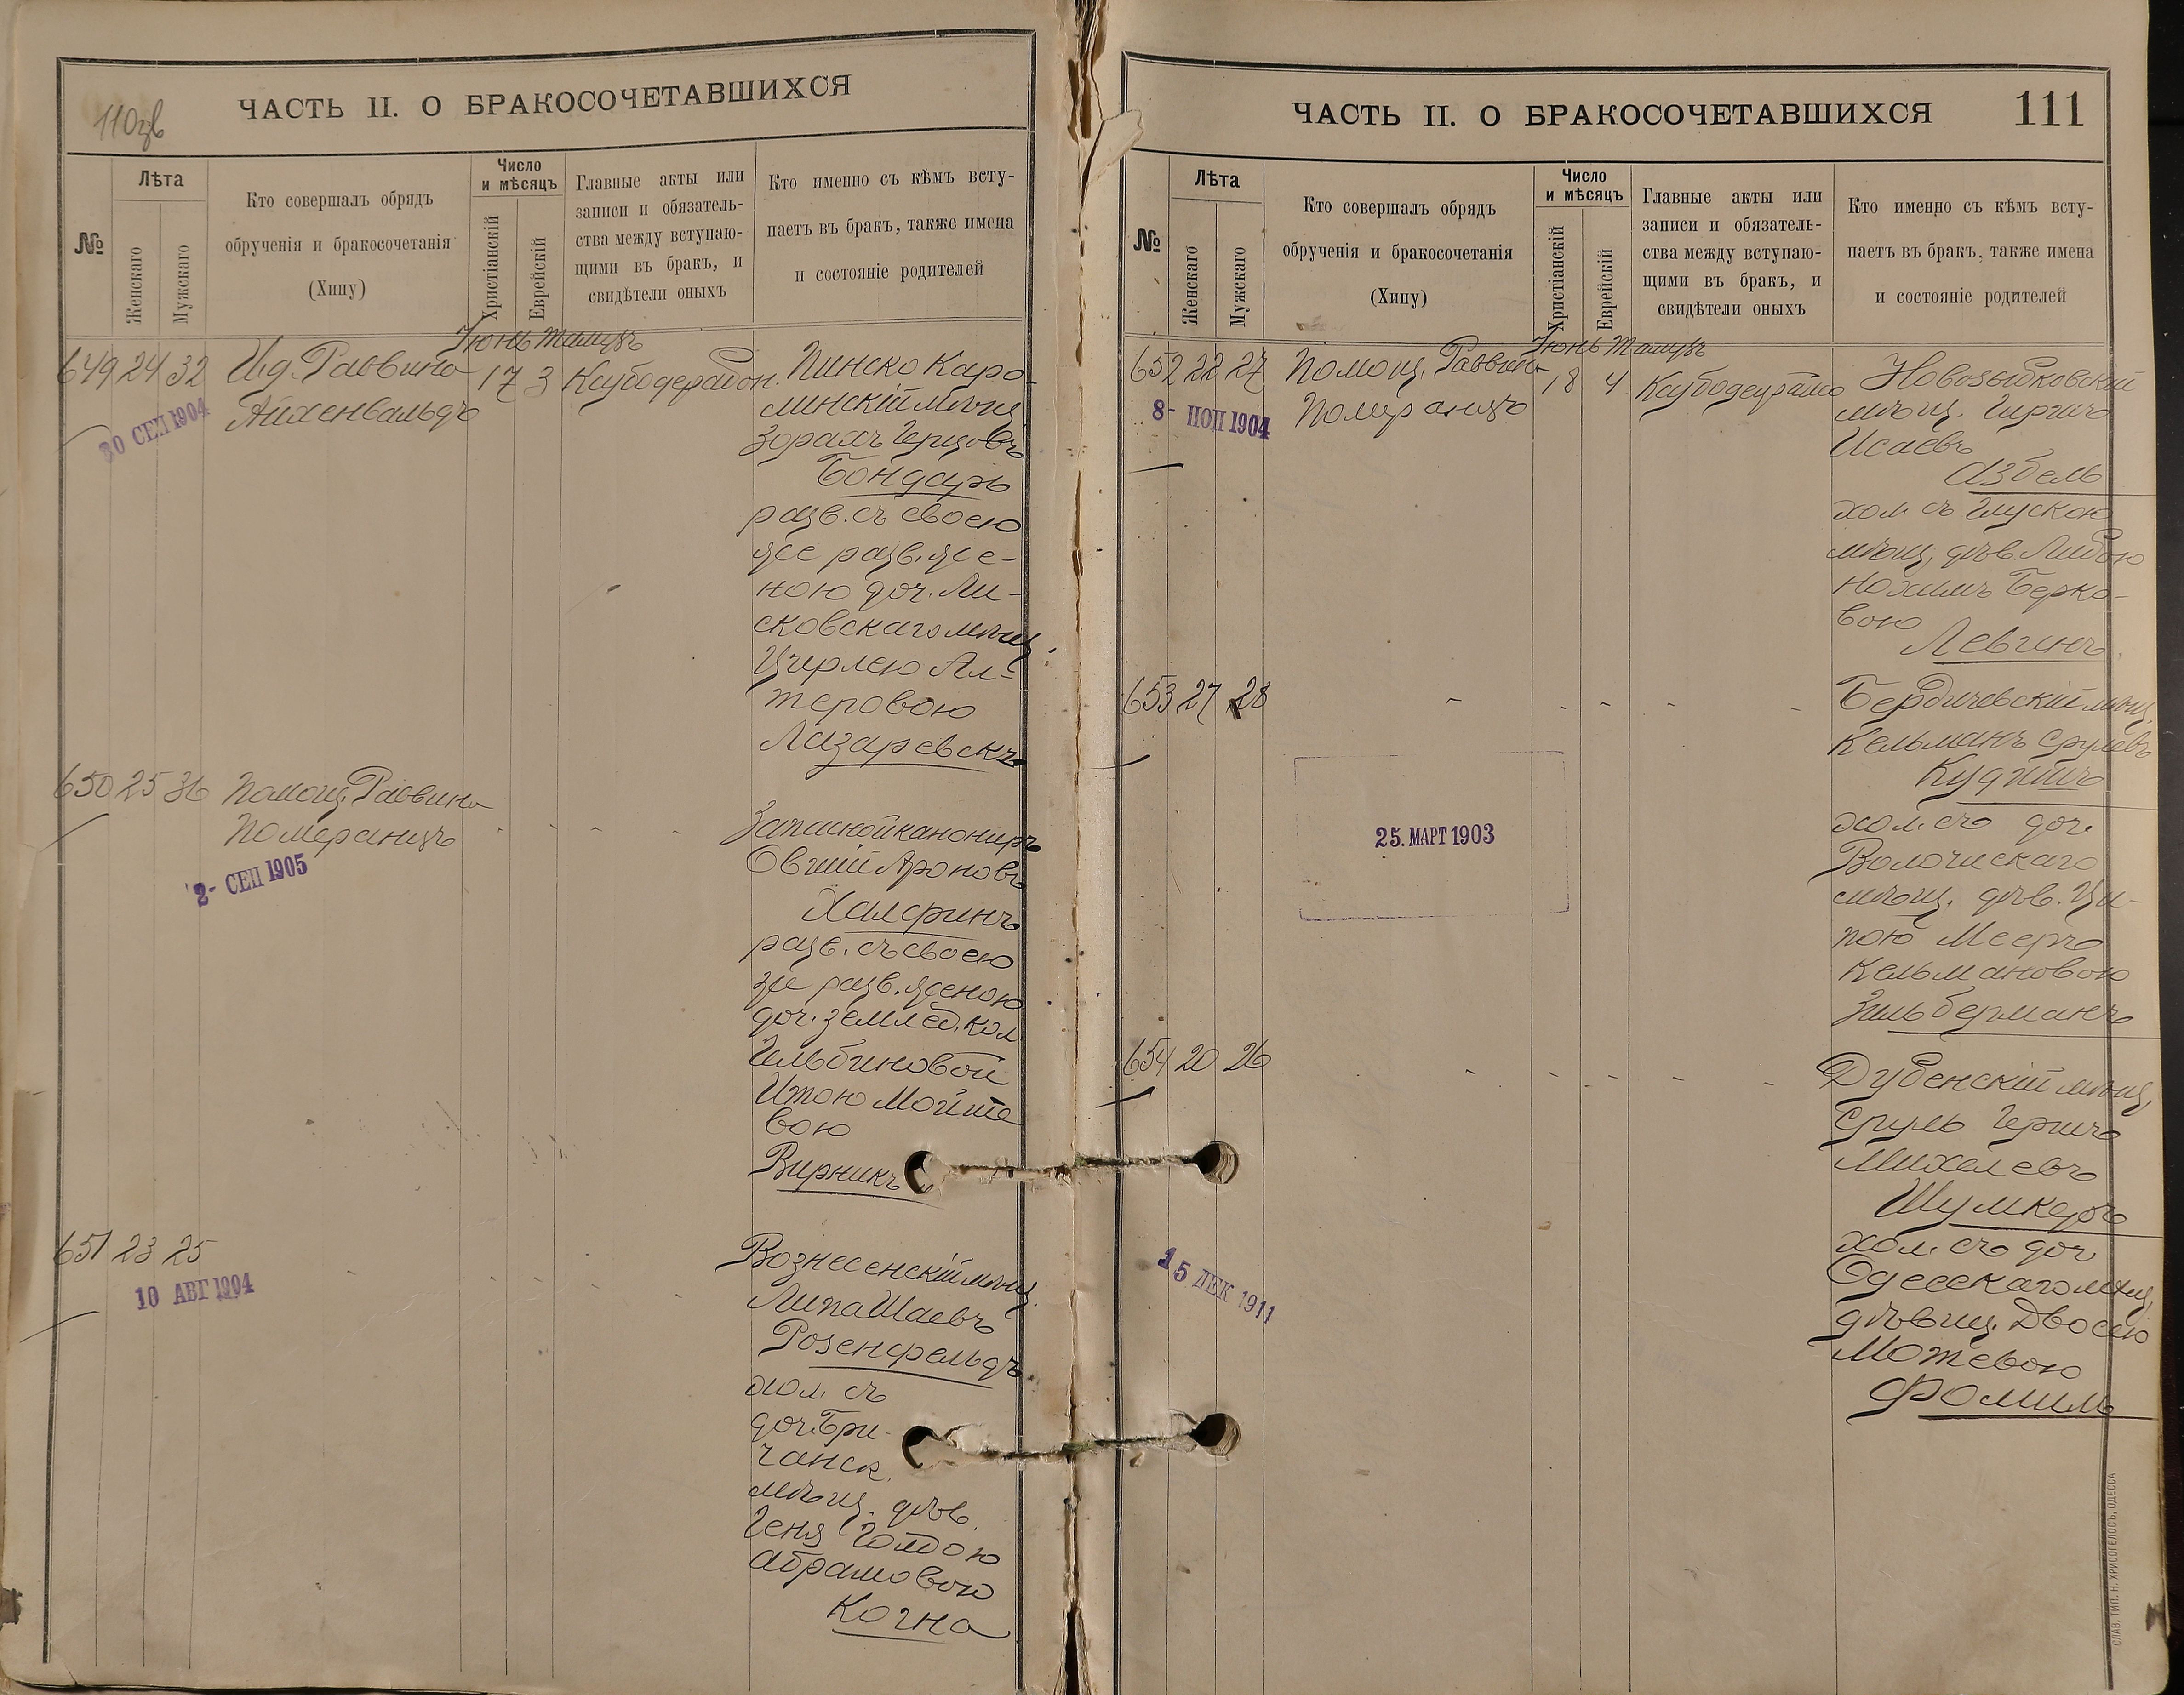 110зв
ЧАСТЬ II. О БРАКОСОЧЕТАВШИХСЯ
№
Лѣта
Женскаго
Мужскаго
Кто совершалъ обрядъ
обрученія и бракосочетанія
(Хипу)
Число
и мѣсяцъ
Христіанскій
Еврейскій
Главные акты или
записи и обязатель-
ства между вступаю-
щими въ бракъ, и
свидѣтели оныхъ
Кто именно съ кѣмъ всту-
паетъ въ бракъ, также имена
и состояніе родителей
Іюнь Тамузъ
649 24 32 И.д. Раввина 17 3
Айхенвальдъ
30 СЕП 1904
Пинско Каро-
линскій мѣщ.
Зорахъ Герцовъ
Бондарь
разв. съ своею
же разв. же-
ною доч. Ли-
сковскаго мѣщ.
Цирлею Ал-
теровою
Лазаревскъ
650 25 36 Помощ. Раввина
Померанцъ
2- СЕП 1905
Запасной канониръ
Овшій Ароновъ
Халфинъ
разв. съ своею
же разв. женою
доч. землед. кол.
Итою Мойше
вою
Вирникъ
651 23 25
10 АВГ 1904
Вознесенскій мѣщ.
Липа Шаевъ
Розенфельдъ
хол. съ
доч. Бри-
чанск.
мѣщ. дѣв.
Геня Голдою
Абрамовою
Когна
ЧАСТЬ II. О БРАКОСОЧЕТАВШИХСЯ
111
№
Лѣта
Женскаго
Мужскаго
Кто совершалъ обрядъ
обрученія и бракосочетанія
(Хипу)
Число
и мѣсяцъ
Христіанскій
Еврейскій
Главные акты или
записи и обязатель-
ства между вступаю-
щими въ бракъ, и
свидѣтели оныхъ
Кто именно съ кѣмъ всту-
паетъ въ бракъ, также имена
и состояніе родителей
Іюнь Тамузъ
652 22 27 Помощ. Раввина 18 4
Померанцъ
8- ІЮП 1904
Новозыбковскій
мѣщ. Гиршъ
Исаевъ
Азбель
хол. съ Глускою
мѣщ. дѣв. Либою
Нохимъ Берко-
вою
Левинъ
653 27 28
25. МАРТ 1903
Бердичевскій мѣщ.
Кельманъ Срулевъ
Кудишъ
хол. съ доч.
Волочискаго
мѣщ. дѣв. Ци-
пою Мееръ
Кельмановою
Зильберманъ
654 20 26
15 ДЕК 1911
Дубенскій мѣщ.
Сруль Гершъ
Михелевъ
Шумкеръ
хол. съ доч
Одесскаго мѣщ.
дѣвиц. Двосею
Мотевою
Фомиль
СЛАВ. ТИП. Н. ХРИСОГЕЛОСЪ, ОДЕССА